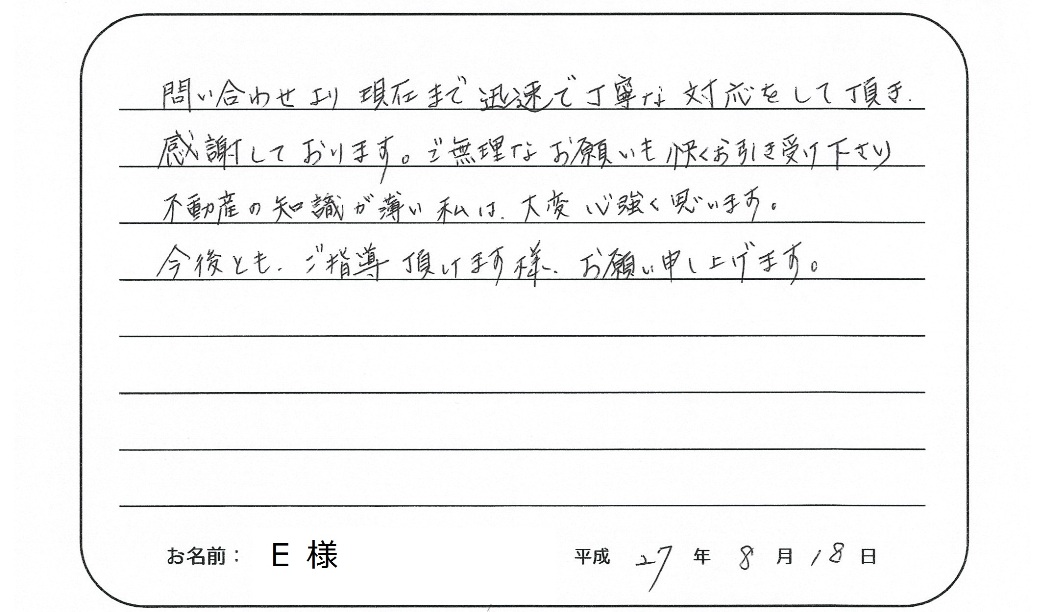 問い合わせより現在まで迅速で丁寧な対応をして頂き、
感謝しております。ご無理なお願いも快くお引き受け下さり
不動産の知識が薄い私は、大変心強く思います。
今後とも、ご指導頂けます様、お願い申し上げます。
お名前： E 様 平成 27 年 8 月 18 日